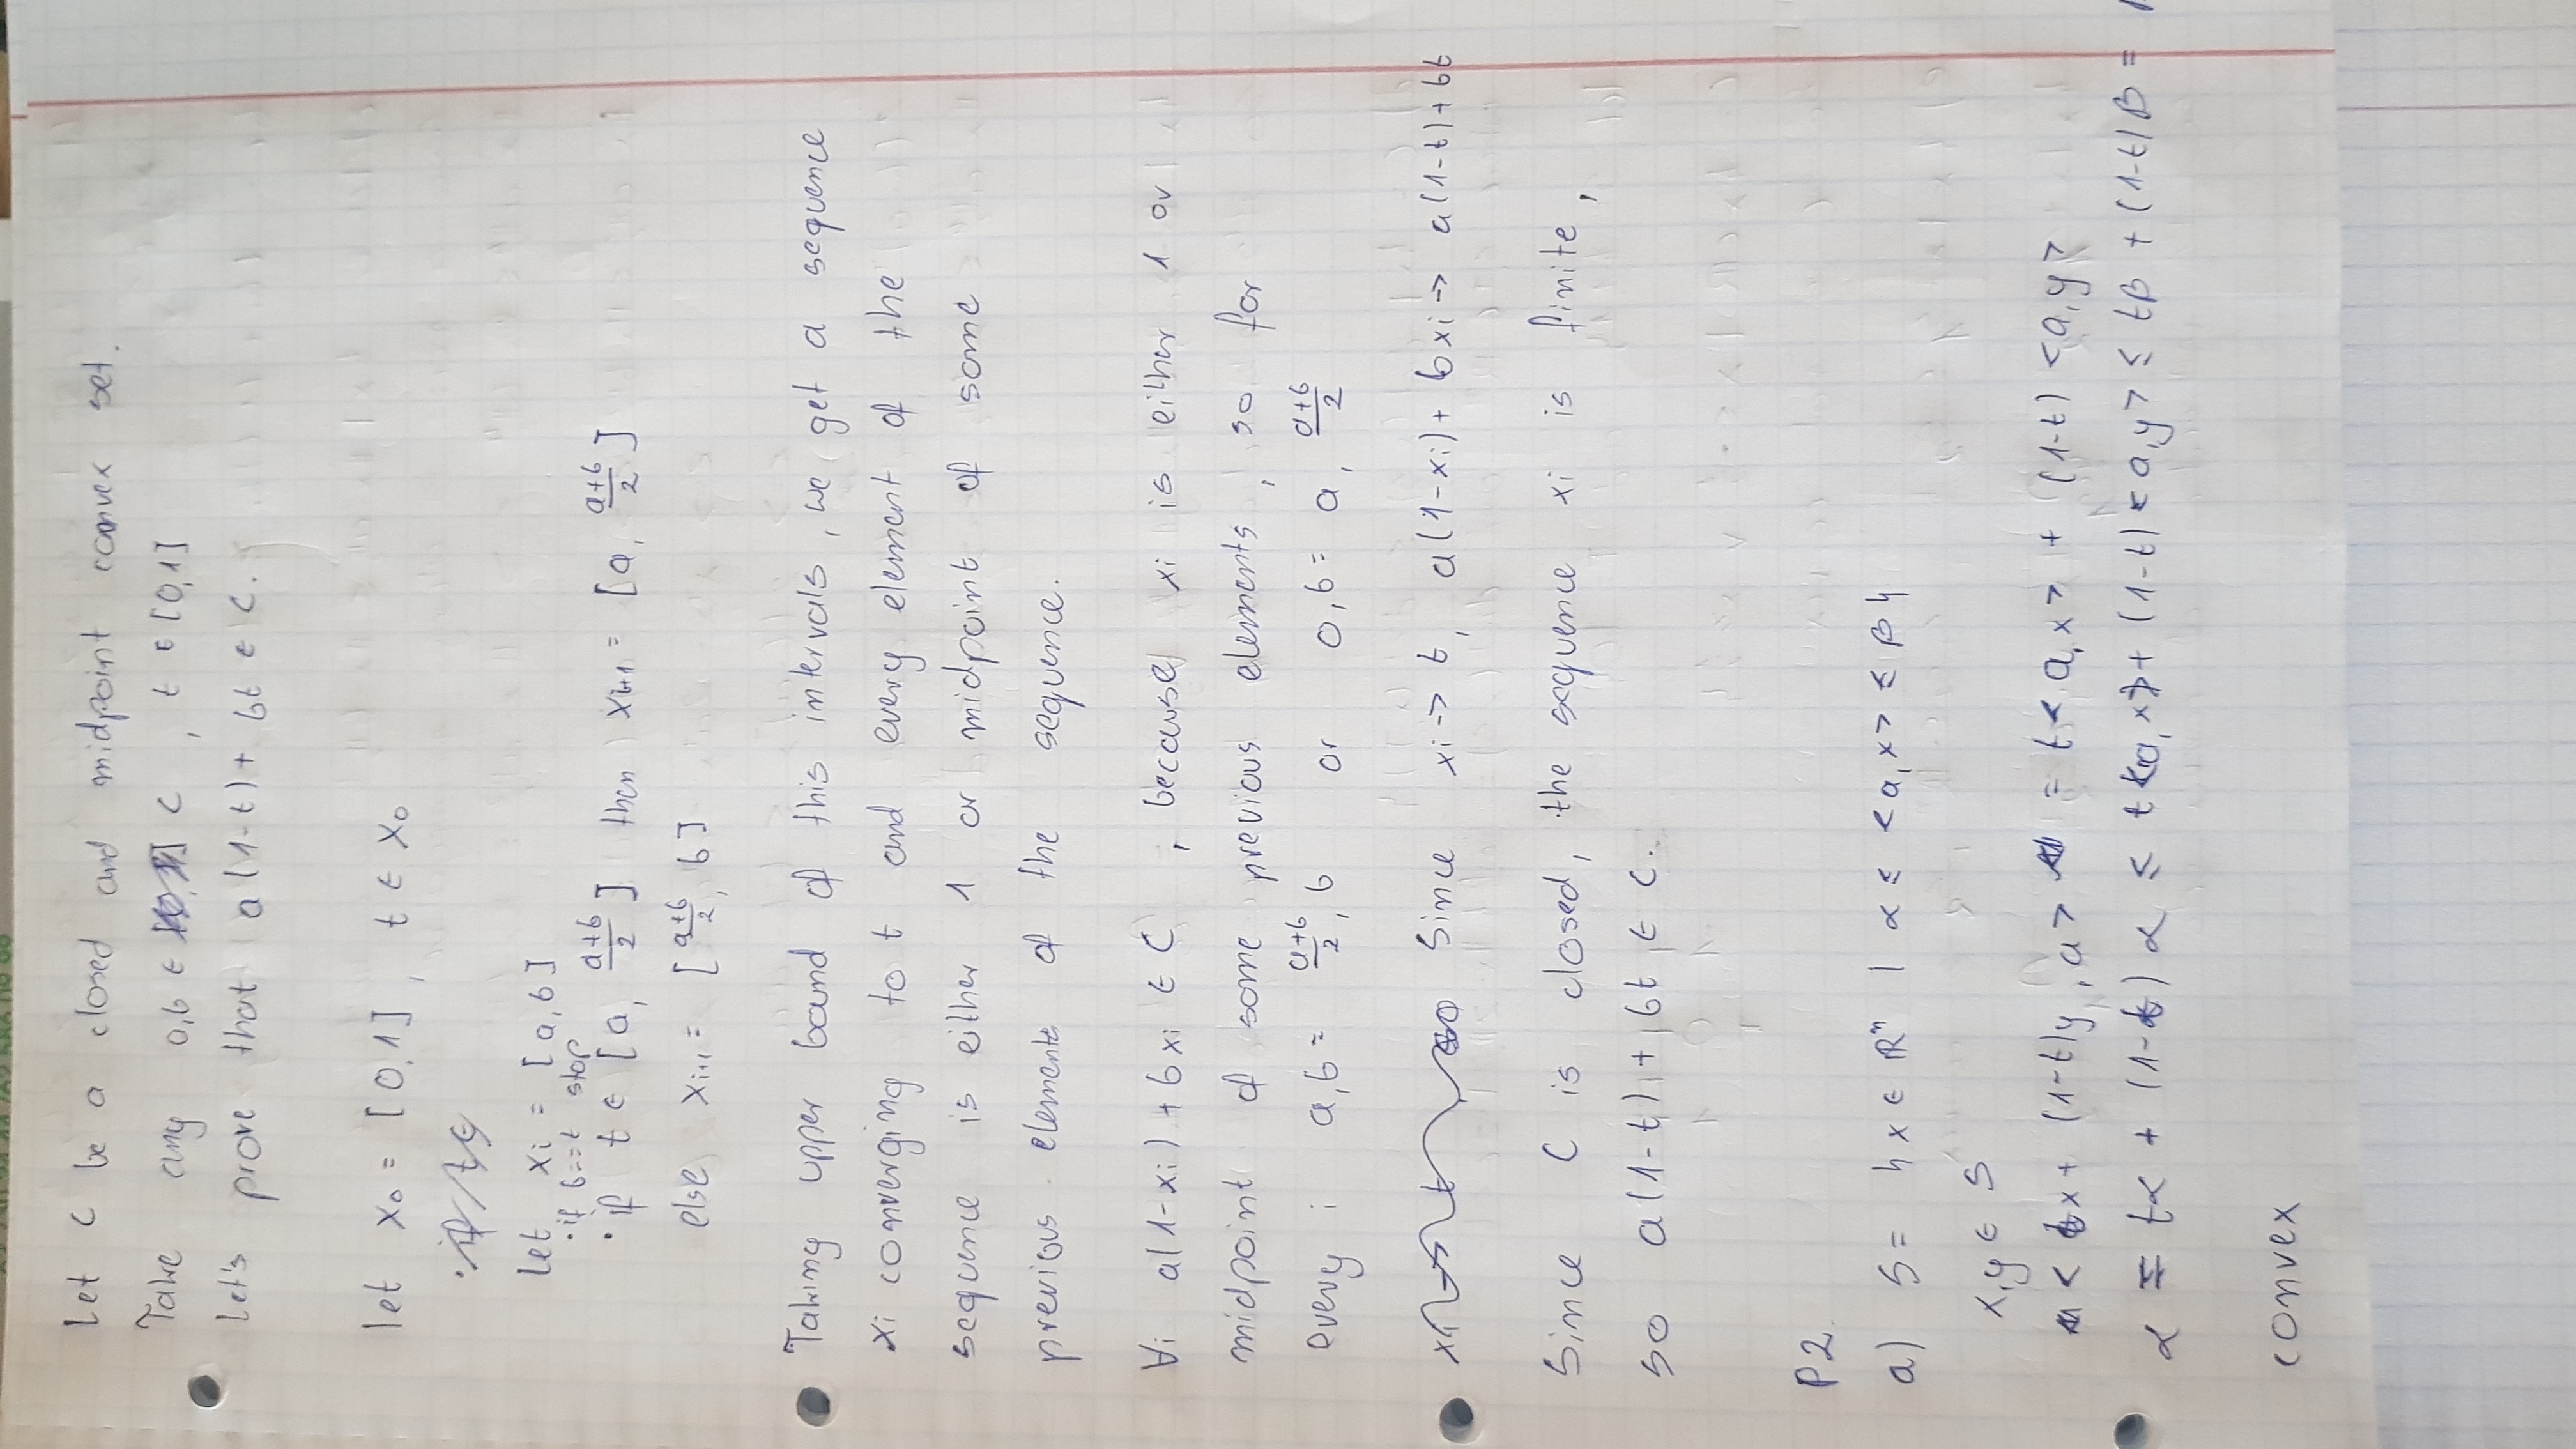 Let C be a closed and midpoint convex set.
Take any a,b ∈ C , t ∈ [0,1]
Let's prove that a(1-t)+ bt ∈ C.
let x₀ = [0,1] , t ∈ x₀
· if t ∈
Let xᵢ = [a,b]
· if b==t stop
· if t ∈ [a, (a+b)/2] then xᵢ₊₁ = [a, (a+b)/2]
else xᵢ₊₁ = [(a+b)/2, b]
Taking upper bound of this intervals, we get a sequence
xi converging to t and every element of the
sequence is either 1 or midpoint of some
previous elements of the sequence.
∀i a(1-xi) + bxi ∈ C , because xi is either 1 or
midpoint of some previous elements, so for
every i a,b = (a+b)/2, b or a,b = a, (a+b)/2
Since xi -> t, a(1-xi)+ bxi -> a(1-t)+bt
Since C is closed, the sequence xi is finite,
so a(1-t) + bt ∈ C.
P2.
a) S = { x ∈ ℝⁿ | α ≤ <a,x> ≤ β }
x,y ∈ S
< tx + (1-t)y , a > = t<a,x> + (1-t) <a,y>
α = tα + (1-t) α ≤ t<a,x> + (1-t) <a,y> ≤ tβ + (1-t)β =
convex